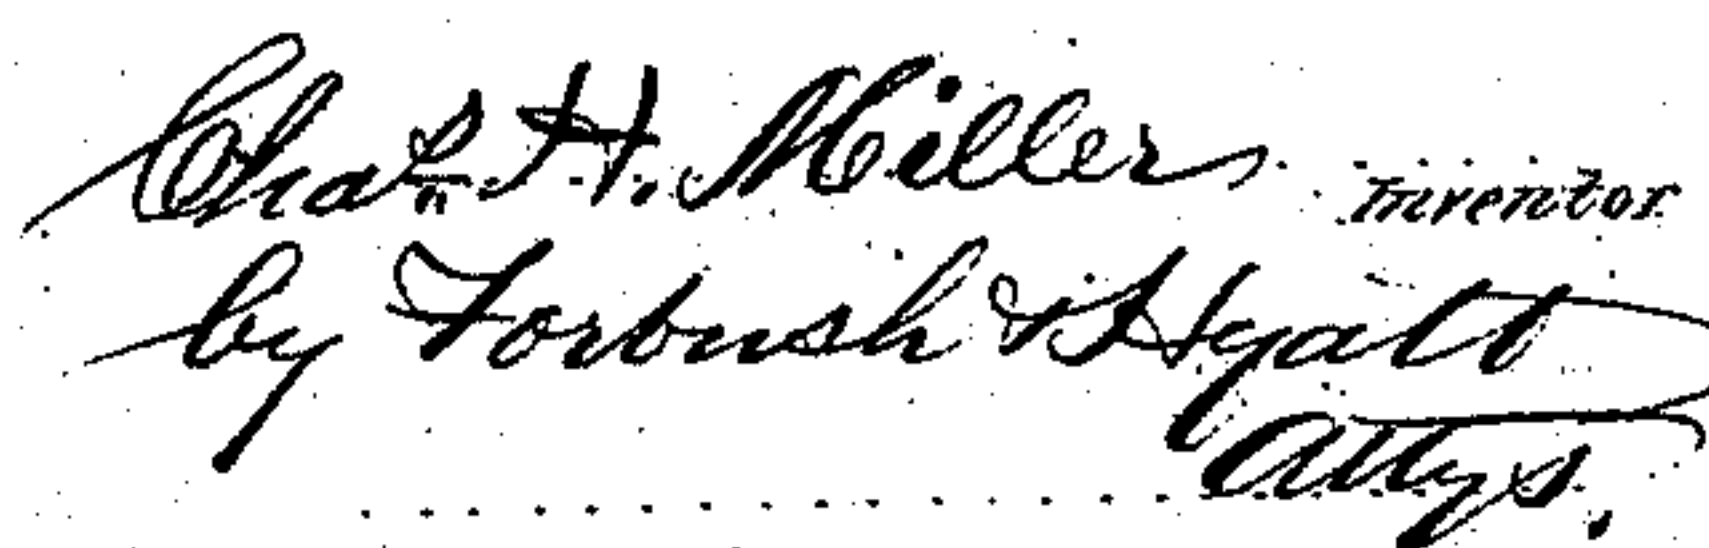 Chas. H. Miller Inventor
by Forbush & Hyatt
Attys.